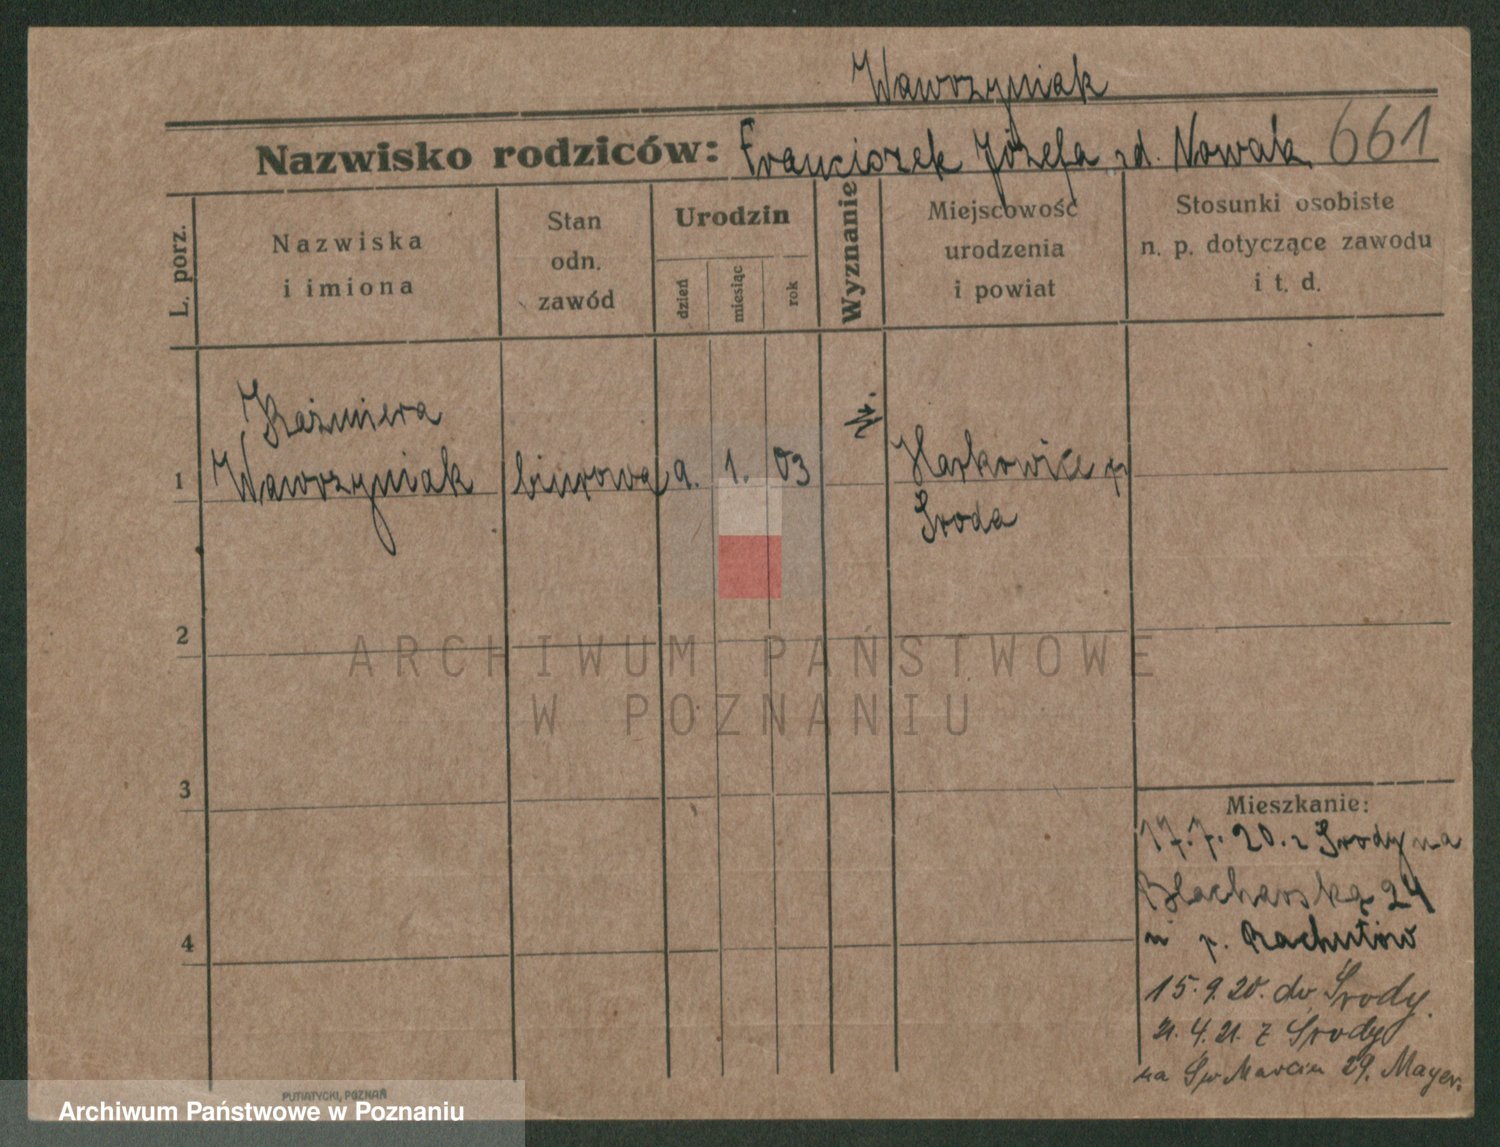 Wawrzyniak
Nazwisko rodziców: Franciszek Józefa zd. Nowak 661
L. porz.
Nazwiska
i imiona
Stan
odn.
zawód
Urodzin
dzień
miesiąc
rok
Wyznanie
Miejscowość
urodzenia
i powiat
Stosunki osobiste
n. p. dotyczące zawodu
i t. d.
1
Kaźmiera
Wawrzyniak
biurowa
9. 1. 03
Harkowice p
Sroda
2
3
4
Mieszkanie:
17.7.20. z Srody na
Blacharską 24
p. Rachutów
15.9.20. do Srody.
21.4.21. z Srody
na Św Marcin 29. Mayer.
PUTIATYCKI, POZNAŃ
ARCHIWUM PAŃSTWOWE
W POZNANIU
Archiwum Państwowe w Poznaniu